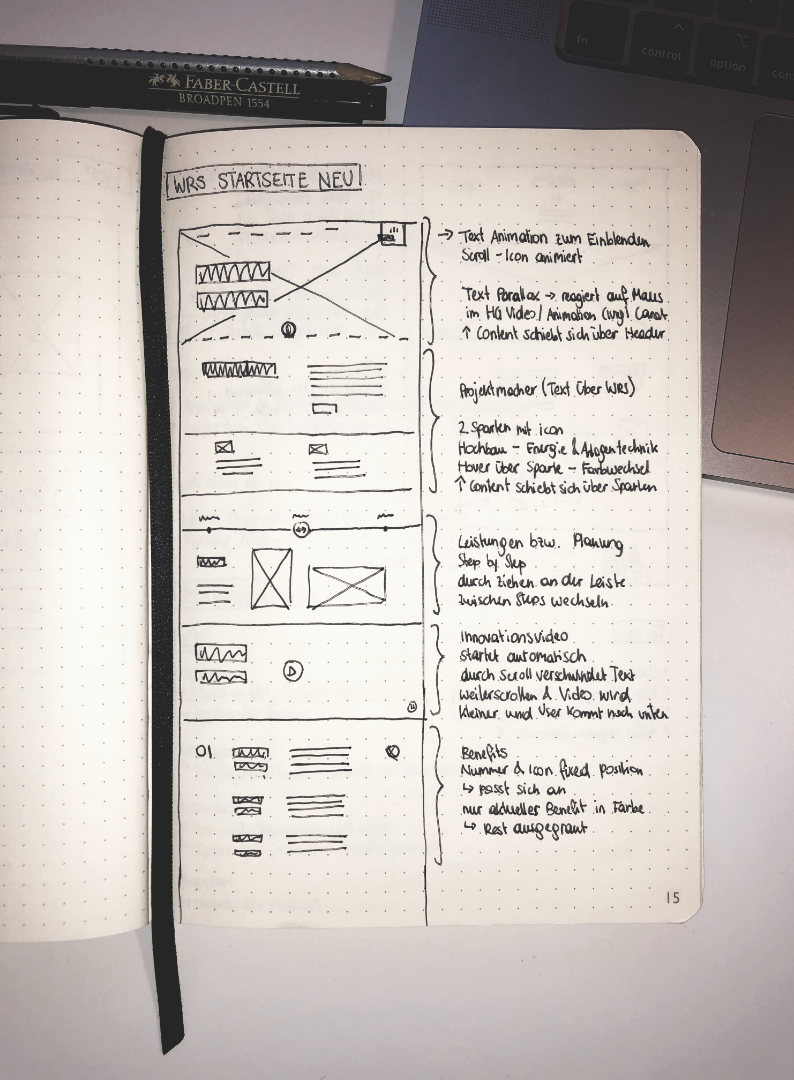 fn
control
option
FABER-CASTELL
BROADPEN 1554
WRS STARTSEITE NEU
→ Text Animation zum Einblenden
Scroll - Icon animiert
Text Parallax → reagiert auf Maus
im HG Video/ Animation
↑ Content schiebt sich über Header
Projektmacher (Text Über WRS)
2 Sparten mit icon
Hochbau - Energie & Anlagentechnik
Hover über Sparte - Farbwechsel
↑ Content schiebt sich über Sparten
Leistungen bzw. Planung
Step by Step
durch ziehen an der Leiste
zwischen Steps wechseln
Innovationsvideo
startet automatisch
durch Scroll verschwindet Text
weiterscrollen & Video wird
kleiner und User kommt nach unten
01
Benefits
Nummer & Icon fixed position
↳ passt sich an
nur aktueller Benefit in Farbe
↳ Rest ausgegraut
15